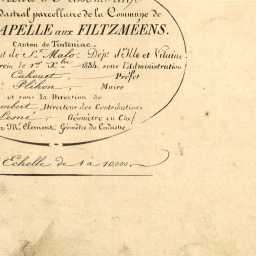 dastral parcellaire de la Commune de
APELLE aux FILTZMÉENS.
Canton de Tinténiac
t de St. Malo, Dépt. d'Ille et Vilaine
1er Xbre 1834, sous l'Administration
Cahouet Préfet
Plihon, Maire
et sous la Direction de
mbert, Directeur des Contributions
Géomètre en Chef
Mr. Clement, Géomètre du Cadastre
Echelle de 1 à 10,000.